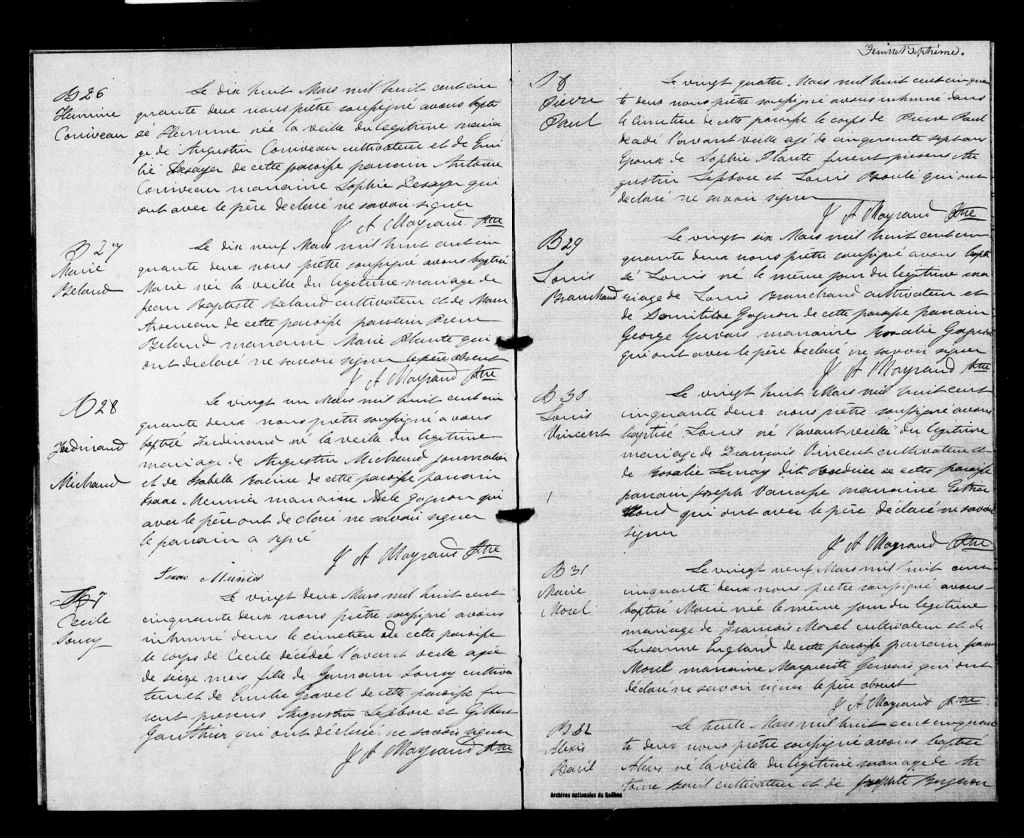 B 26
Hermine
Corriveau
Le dix huit Mars mil huit cent cin
quante deux nous prêtre soussigné avons bapti
sé Hermine née la veille du legitime maria
ge de Augustin Corriveau cultivateur et de Emi
lie de cette paroisse parrain Antoine
Corriveau marraine Sophie qui
ont avec le père declaré ne savoir signer
J A Mayrand Ptre
B 27
Marie
Beland
Le dix neuf Mars mil huit cent cin
quante deux nous prêtre soussigné avons baptisé
Marie née la veille du legitime mariage de
Jean Baptiste Beland cultivateur et de Marie
Arseneau de cette paroisse parrain Pierre
Beland marraine Marie Plante qui
ont declaré ne savoir signer le père absent
J A Mayrand Ptre
28
Ferdinand
Michaud
Le vingt un Mars mil huit cent cin
quante deux nous prêtre soussigné avons
baptisé Ferdinand né la veille du legitime
mariage de Augustin Michaud journalier
et de Isabelle Racine de cette paroisse parrain
Isaac Meunier marraine Adele Gagnon qui
avec le père ont declaré ne savoir signer
le parrain a signé
J A Mayrand Ptre
Isaac
7
Cecile
Soucy
Le vingt deux Mars mil huit cent
cinquante deux nous prêtre soussigné avons
inhumé dans le cimetiere de cette paroisse
le corps de Cecile décédée l'avant veille agée
de seize mois fille de Germain Soucy cultiva
teur et de Emilie Gravel de cette paroisse fu
rent presens Augustin Lefebvre et Gilbert
Gauthier qui ont déclaré ne savoir signer
J A Mayrand Ptre
Feuillet Septième.
8
Pierre
Paul
Le vingt quatre Mars mil huit cent cinquan
te deux nous prêtre soussigné avons inhumé dans
le cimetiere de cette paroisse le corps de Pierre Paul
decedé l'avant veille agé de cinquante sept ans
Epoux de Sophie Plante furent presens Au
gustin Lefebvre et Louis qui ont
declaré ne savoir signer
J A Mayrand Ptre
B 29
Louis
Branchaud
Le vingt six Mars mil huit cent cin
quante deux nous prêtre soussigné avons bapti
sé Louis né le même jour du legitime ma
riage de Louis Branchaud cultivateur et
de Domitilde Gagnon de cette paroisse parrain
George Gervais marraine Rosalie Gagnon
qui ont avec le père declaré ne savoir signer
J A Mayrand Ptre
B 30
Louis
Vincent
Le vingt huit Mars mil huit cent
cinquante deux nous prêtre soussigné avons
baptisé Louis né l'avant veille du legitime
mariage de François Vincent cultivateur et
de Rosalie dit de cette paroisse
parrain Joseph Vanasse marraine Esther
qui ont avec le père declaré ne savoir
signer
J A Mayrand Ptre
B 31
Marie
Morel
Le vingt neuf Mars mil huit cent
cinquante deux nous prêtre soussigné avons
baptisé Marie née le même jour du legitime
mariage de François Morel cultivateur et de
Susanne England de cette paroisse parrain Jean
Morel marraine Marguerite Gervais qui ont
déclaré ne savoir signer le père absent
J A Mayrand Ptre
B 32
Alexis
Baril
Le trente Mars mil huit cent cinquan
te deux nous prêtre soussigné avons baptisé
Alexis né la veille du legitime mariage de An
toine Baril cultivateur et de Josephte
Archives nationales du Québec